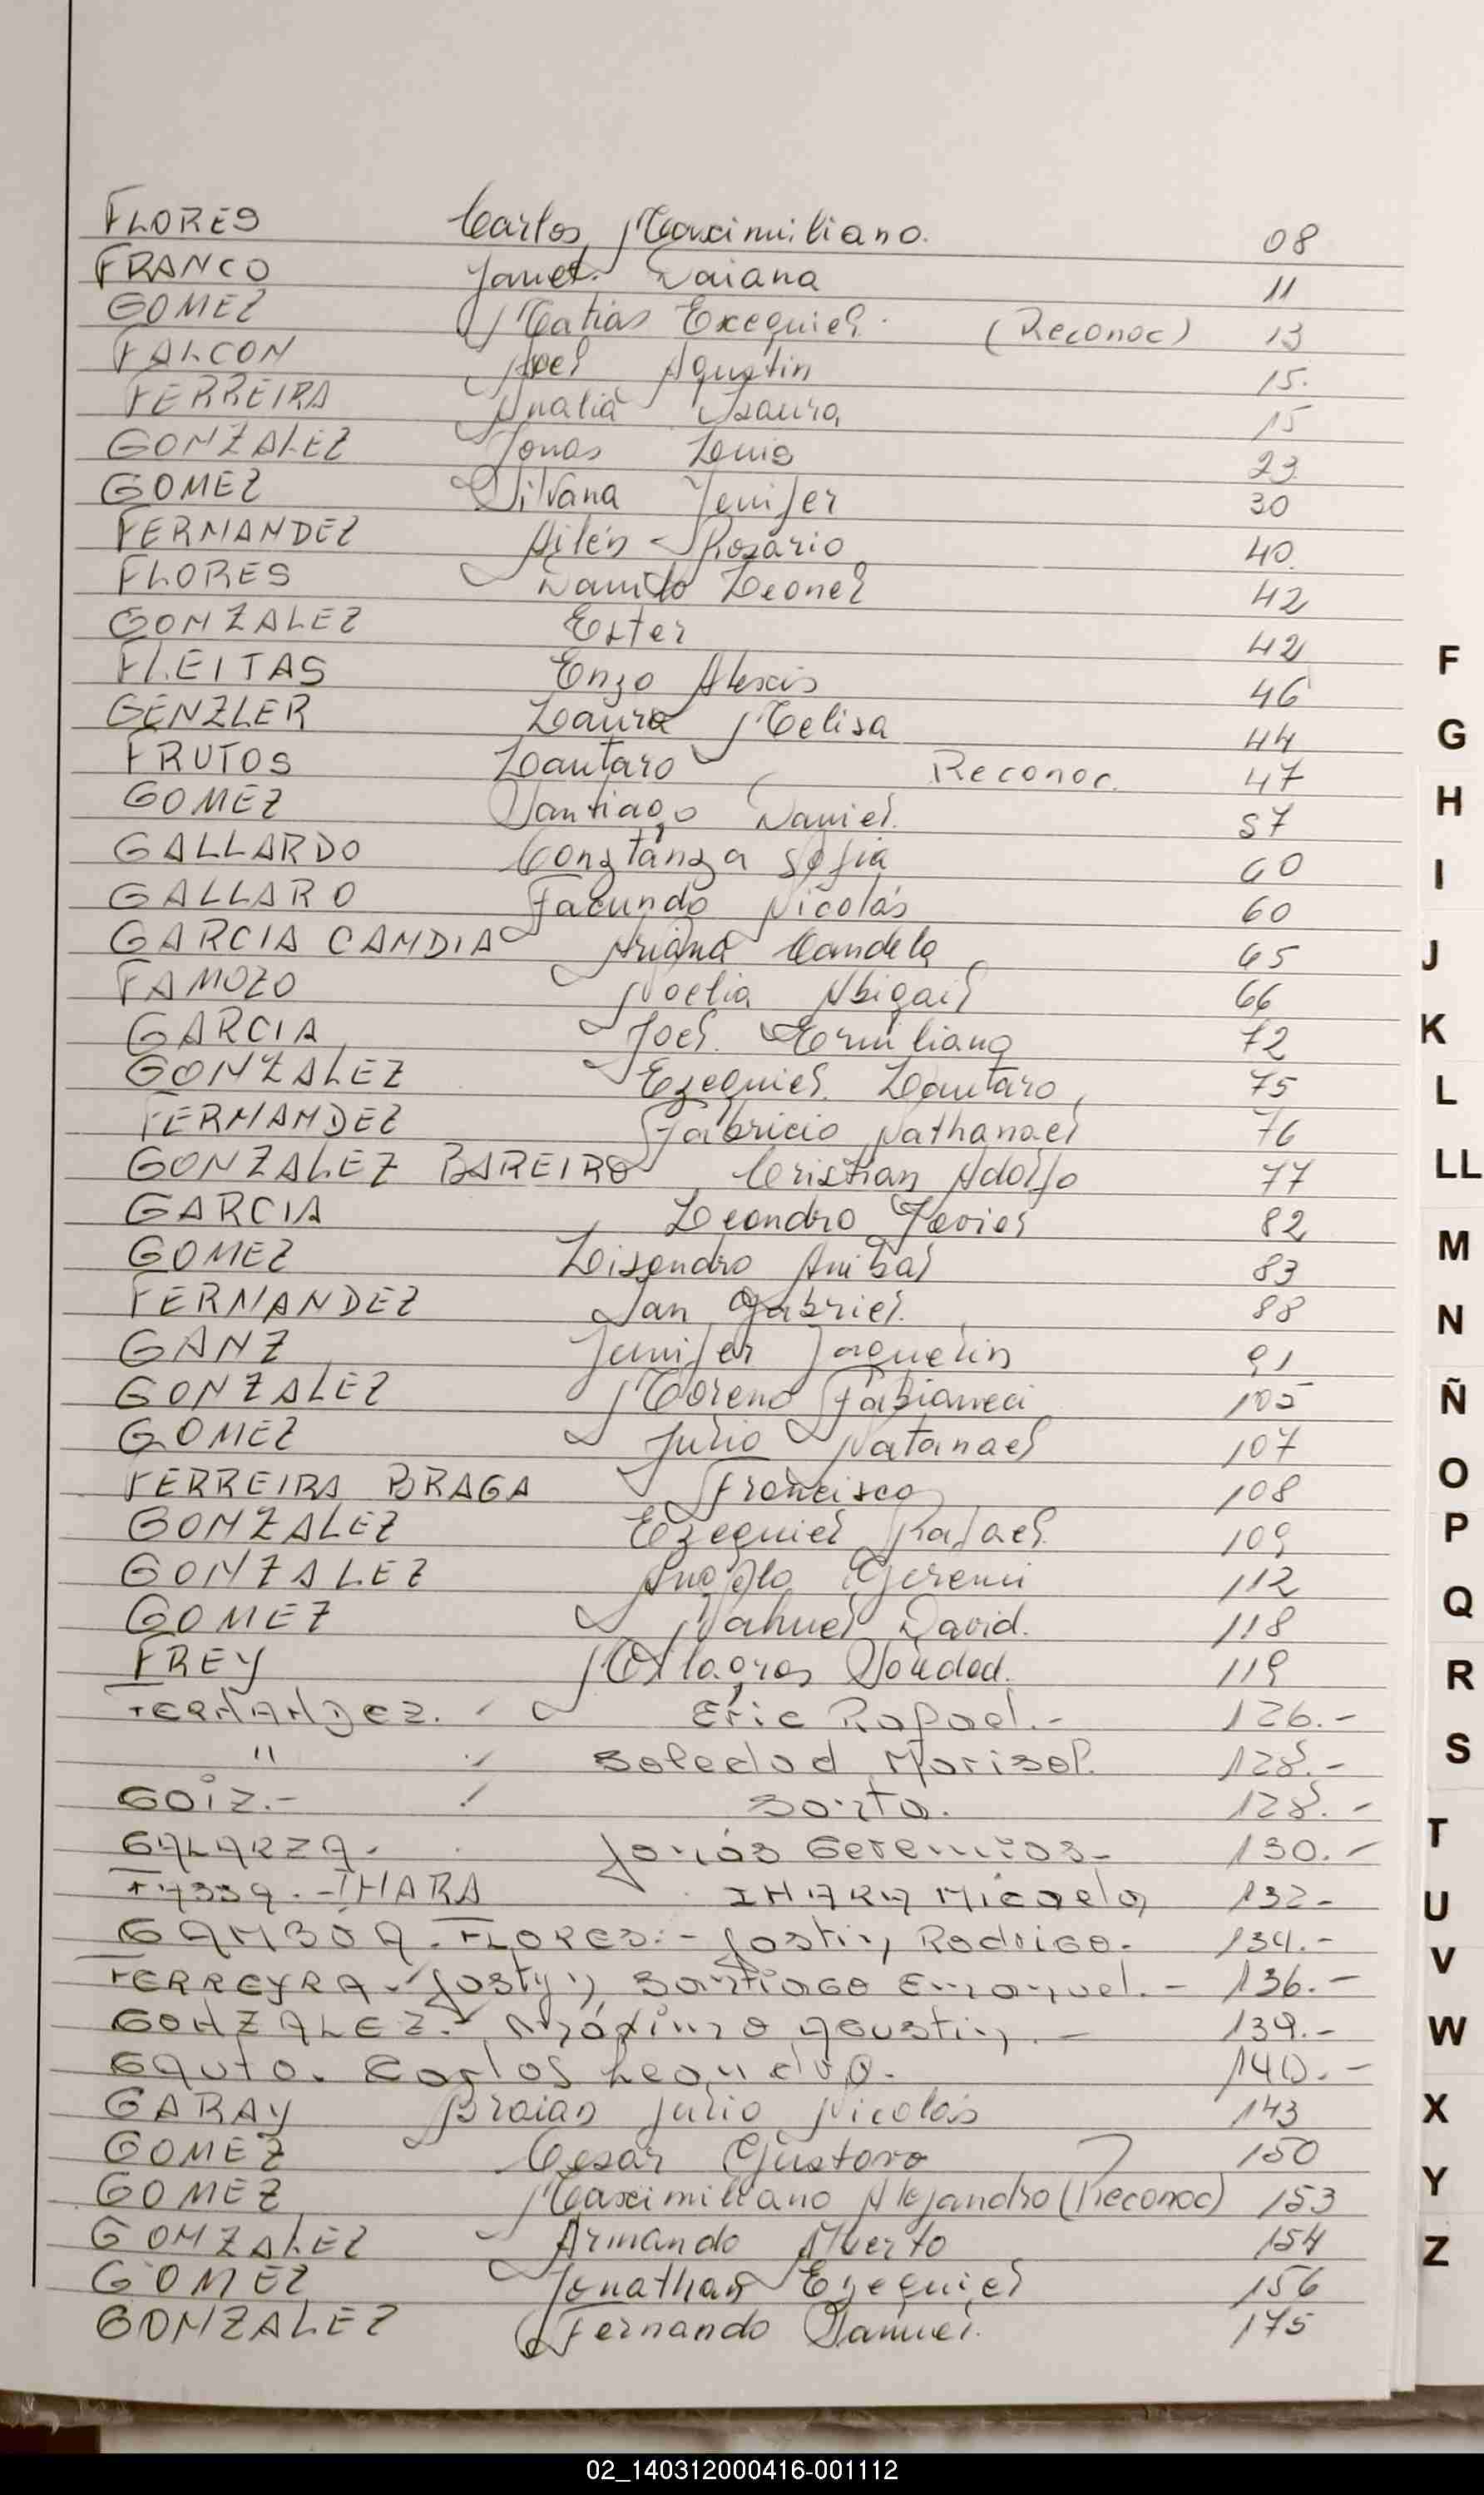 FLORES Carlos Maximiliano. 08
FRANCO Janet Daiana 11
GOMEZ Matias Exequiel. (Reconoc) 13
FALCON Joel Agustin 15.
FERREIRA Analia Isaura 15
GONZALEZ Jonas Luis 23
GOMEZ Silvana Yenifer 30
FERNANDEZ Ailén Rosario 40.
FLORES Danilo Leonel 42
GONZALEZ Ester 42
FLEITAS Enzo Alexis 46
GENZLER Laura Melisa 44
FRUTOS Lautaro Reconoc. 47
GOMEZ Santiago Daniel. 57
GALLARDO Constanza Sofia 60
GALLARO Facundo Nicolás 60
GARCIA CANDIA Ariana Candela 65
FAMOZO Noelia Abigail 66
GARCIA Joel. Emiliano 72
GONZALEZ Ezequiel. Lautaro 75
FERNANDEZ Fabricio Nathanael 76
GONZALEZ BAREIRO Cristian Adolfo 77
GARCIA Leandro Javier 82
GOMEZ Lisandro Anibal 83
FERNANDEZ Ian Gabriel. 88
GANZ Jenifer Jaquelin 91
GONZALEZ Moreno 105
GOMEZ Julio Natanael 107
FERREIRA BRAGA Francisco 108
GONZALEZ Ezequiel Rafael 109
GONZALEZ Angelo Geremi 112
GOMEZ Nahuel David. 118
FREY Milagros Soledad. 119
FERNANDEZ. Eric Rafael.- 126.-
" Soledad Marisol. 128.-
GOIZ.- Santo. 128.-
GALARZA. Jonás Geremias- 130.-
IHARA IHARA Micaela 132-
GAMBOA. FLORES.- Jostin Rodrigo. 134.-
FERREYRA. Jostyn Santiago Emanuel.- 136.-
GONZALEZ. Máximo Agustin.- 139.-
GAUTO. Carlos Leandro. 140.-
GARAY Braian Julio Nicolás 143
GOMEZ Cesar Gustavo 150
GOMEZ Maximiliano Alejandro (Reconoc) 153
GONZALEZ Armando Alberto 154
GOMEZ Jonathan Ezequiel 156
GONZALEZ Fernando Samuel. 175
F
G
H
I
J
K
L
LL
M
N
Ñ
O
P
Q
R
S
T
U
V
W
X
Y
Z
02_140312000416-001112